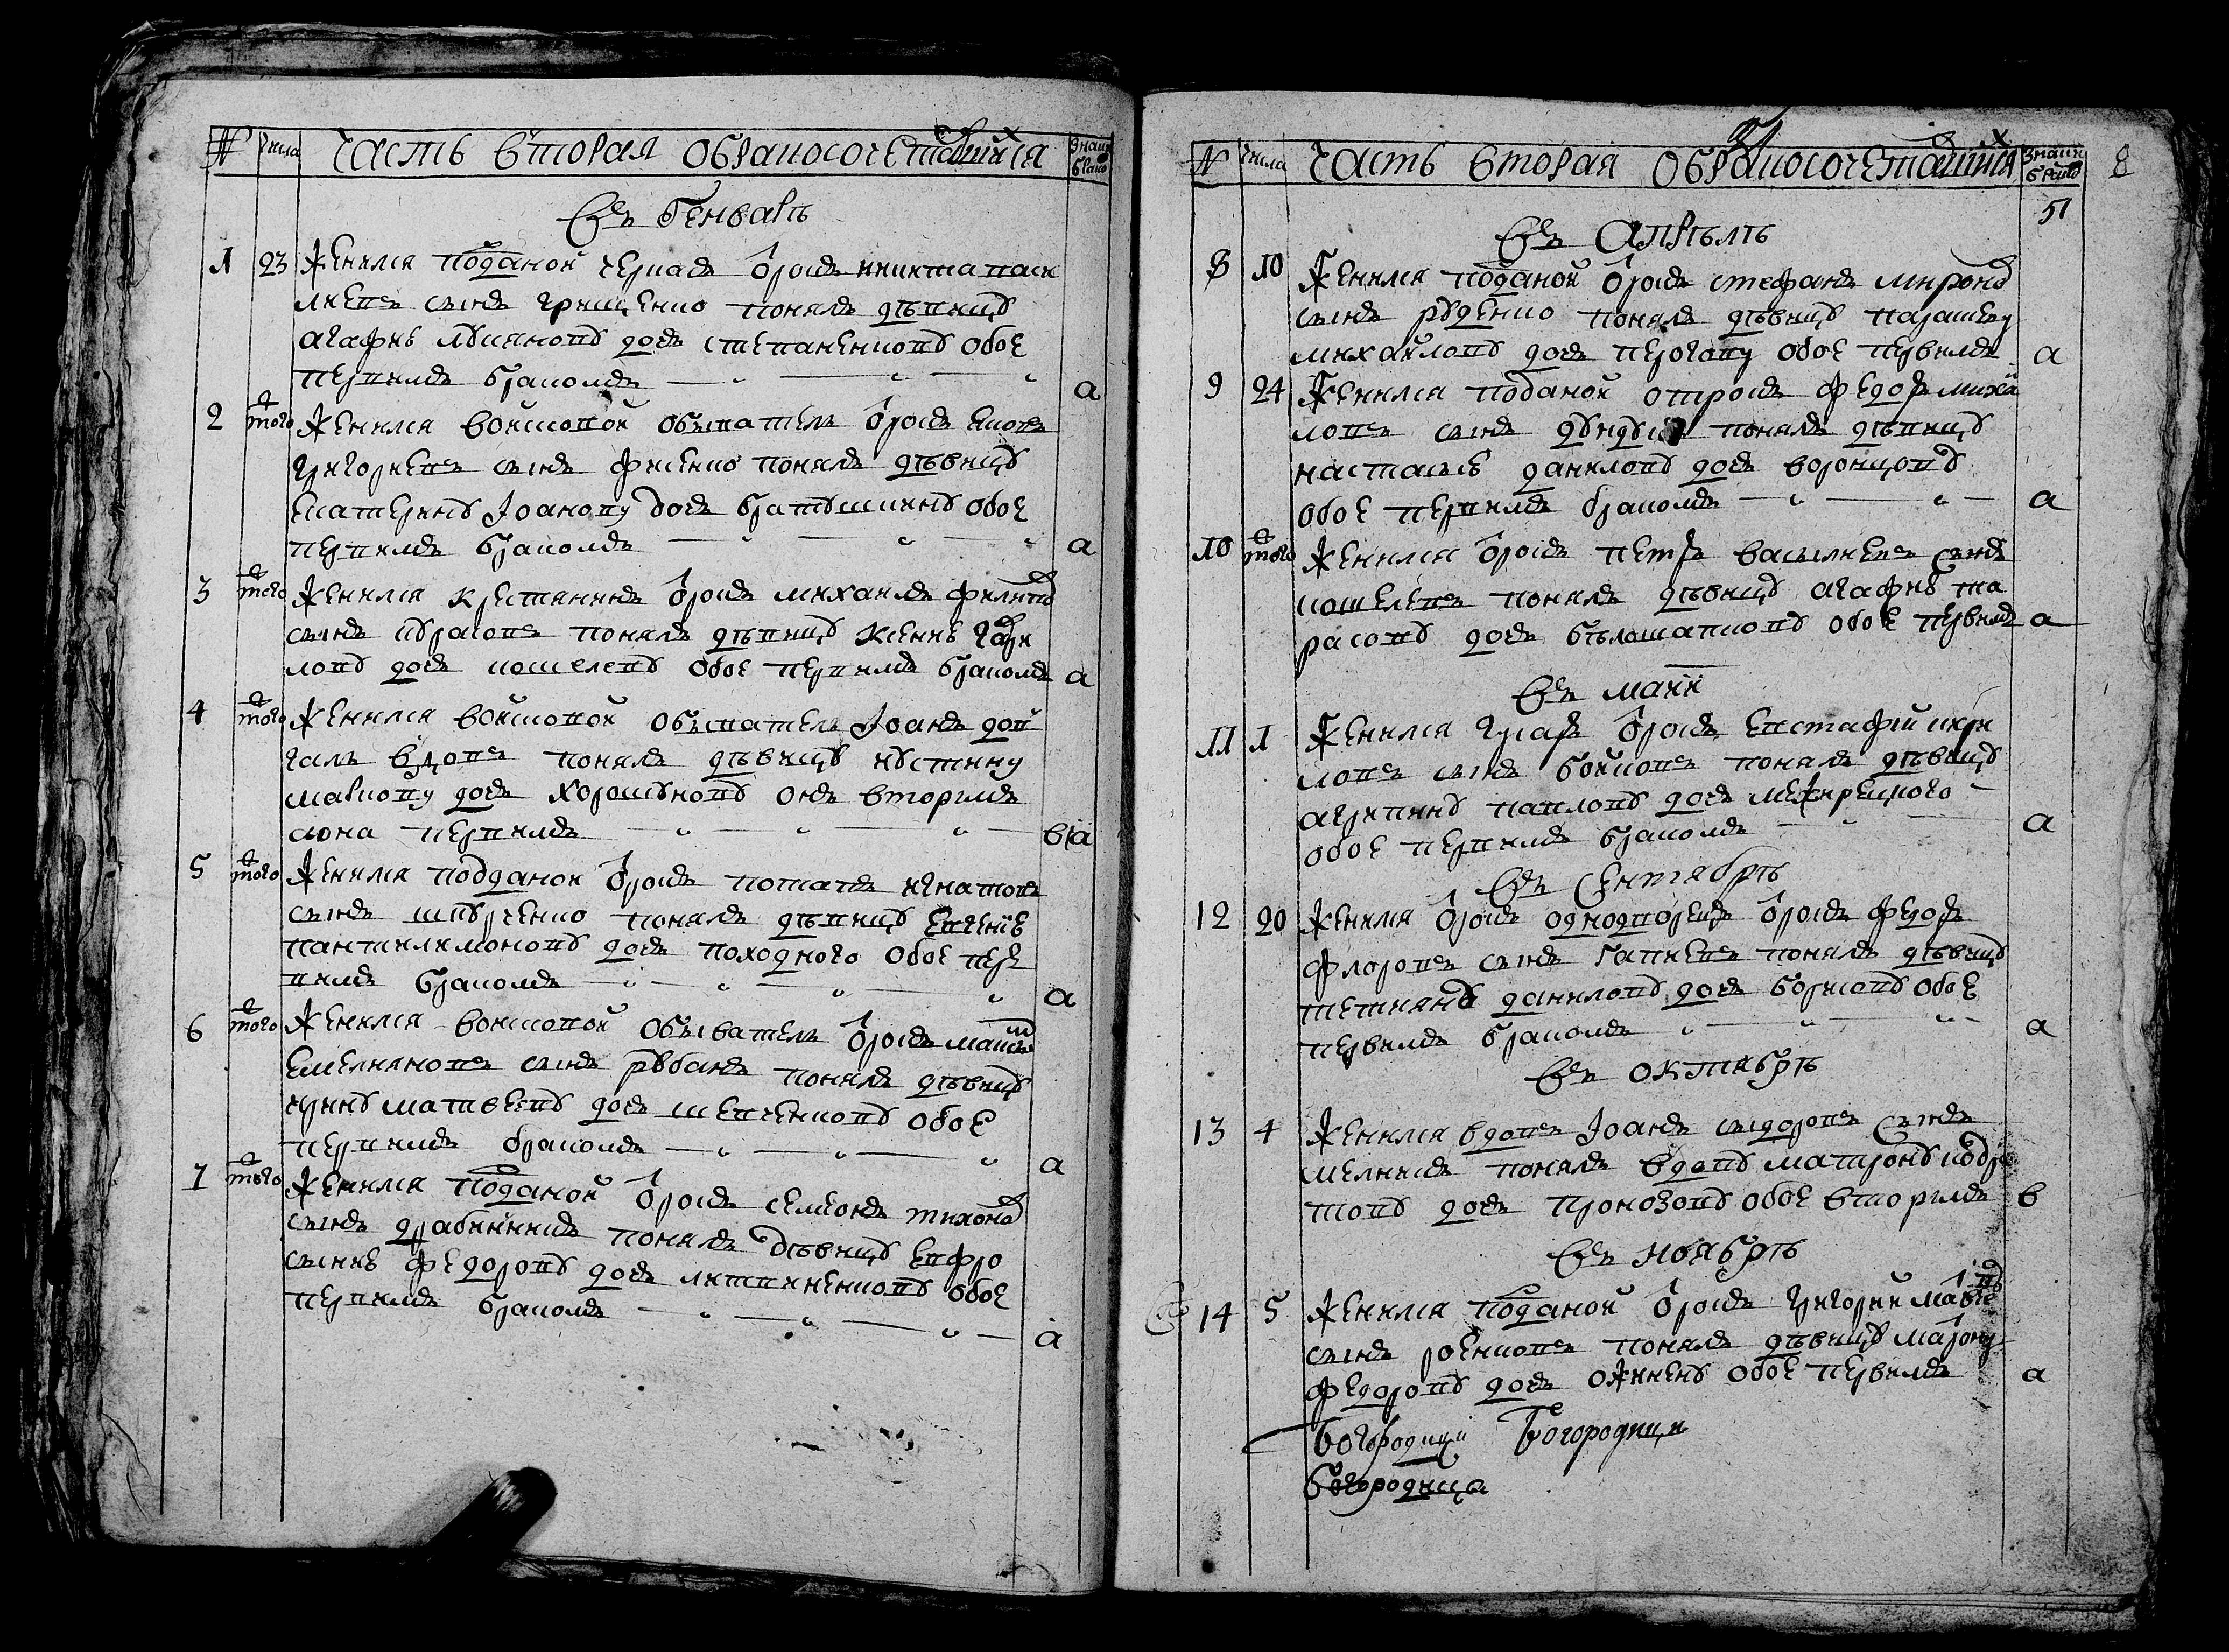 № числа Часть вторая о бракосочетавшихся Знаки браков
Въ Генварѣ
1 23 Женился подданой черкасъ отрокъ никита
сынъ грищенко понялъ дѣвицу
агафию лукянову дочь степаненкову обое
первымъ бракомъ а
2 того Женился войсковой обыватель отрокъ
григориевъ сынъ фисенко понялъ дѣвицу
екатерину Іоанову дочь обое
первымъ бракомъ а
3 того Женился крестянинъ отрокъ михаилъ филиповъ
сынъ понялъ дѣвицу ксению гаври
лову дочь кошелеву обое первымъ бракомъ а
4 того Женился войсковой обыватель Іоанъ дов
галь вдовецъ понялъ дѣвицу иустину
маркову дочь хорошунову онъ вторымъ
а она первымъ в/а
5 того Женился подданой отрокъ потапъ игнатовъ
сынъ шпурченко понялъ дѣвицу евгению
пантилимонову дочь походного обое пер
вымъ бракомъ а
6 того Женился войсковой обыватель отрокъ
емелияновъ сынъ рубанъ понялъ дѣвицу
ирину матвееву дочь шевченкову обое
первымъ бракомъ а
7 того Женился подданой отрокъ семионъ тихоновъ
сынъ понялъ дѣвицу евфро
сынию федорову дочь литвиненкову обое
первымъ бракомъ а
№ числа Часть вторая о бракосочетавшихся Знаки браковъ 8
51
Въ Апрѣлѣ
8 10 Женился подданой отрокъ стефанъ мироновъ
сынъ руденко понялъ дѣвицу парашеву
михайлову дочь пирогову обое первымъ а
9 24 Женился поданой отрокъ федоръ михаи
ловъ сынъ понялъ дѣвицу
настасию данилову дочь воронцову
обое первымъ бракомъ а
10 того Женился отрокъ петръ василиевъ сынъ
кошелевъ понялъ дѣвицу агафию та
расову дочь обое первымъ а
Въ маии
11 1 Женился отрокъ евстафии кири
ловъ сынъ бойковъ понялъ дѣвицу
агрипину павлову дочь межирецкого
обое первымъ бракомъ а
Въ Сентябрѣ
12 20 Женился отрокъ однодворецъ отрокъ федоръ
флоровъ сынъ гапиевъ понялъ дѣвицу
тетияну данилову дочь борисову обое
первымъ бракомъ а
Въ октябрѣ
13 4 Женился вдовецъ Іоанъ сыдоровъ сынъ
мелникъ понялъ вдову матрону кодра
тову дочь пронозову обое вторымъ в
Въ ноябрѣ
14 5 Женился подданой отрокъ григории
сынъ ревковъ понялъ дѣвицу
федорову дочь обое первымъ а
Богородици Богородици
богородица